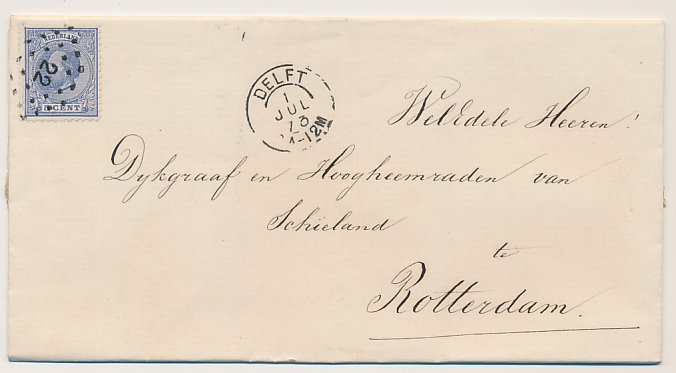 NEDERLAND
22
5 CENT
DELFT
1
JUL
73
12M
WelEdele Heeren!
Dykgraaf en Hoogheemraden van
Schieland
te
Rotterdam.